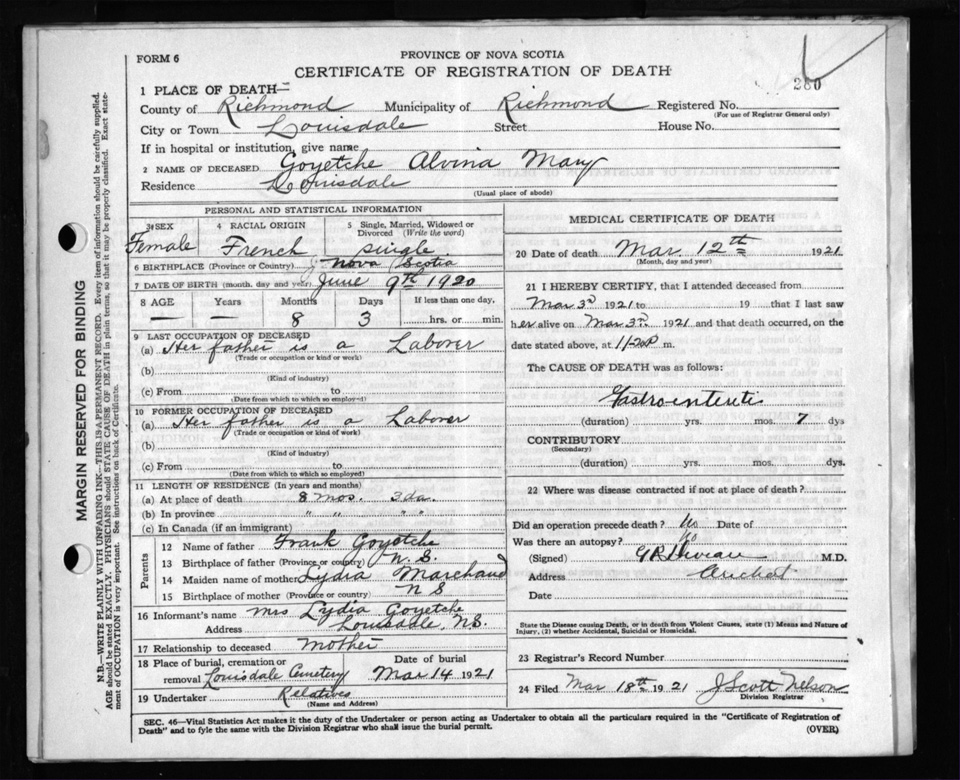 FORM 6
PROVINCE OF NOVA SCOTIA
CERTIFICATE OF REGISTRATION OF DEATH
280
1 PLACE OF DEATH—
County of Richmond Municipality of Richmond Registered No.
(For use of Registrar General only)
City or Town Louisdale Street House No.
If in hospital or institution, give name
2 NAME OF DECEASED Goyetche Alvina Mary
Residence Louisdale
(Usual place of abode)
PERSONAL AND STATISTICAL INFORMATION
3 SEX 4 RACIAL ORIGIN 5 Single, Married, Widowed or Divorced (Write the word)
Female French single
6 BIRTHPLACE (Province or Country) Nova Scotia
7 DATE OF BIRTH (month, day and year) June 9th 1920
8 AGE Years Months Days If less than one day,
— — 8 3 hrs. or min.
9 LAST OCCUPATION OF DECEASED
(a) Her father is a Laborer
(Trade or occupation or kind of work)
(b)
(Kind of industry)
(c) From to
(Date from which to which so employed)
10 FORMER OCCUPATION OF DECEASED
(a) Her father is a Laborer
(Trade or occupation or kind of work)
(b)
(Kind of industry)
(c) From to
(Date from which to which so employed)
11 LENGTH OF RESIDENCE (In years and months)
(a) At place of death 8 mos. 3 da.
(b) In province " " " "
(c) In Canada (if an immigrant)
Parents
12 Name of father Frank Goyetche
13 Birthplace of father (Province or country) N. S.
14 Maiden name of mother Lydia Marchand
15 Birthplace of mother (Province or country) N S
16 Informant's name Mrs Lydia Goyetche
Address Louisdale, N.S.
17 Relationship to deceased Mother
18 Place of burial, cremation or removal Louisdale Cemetery Date of burial Mar 14 1921
19 Undertaker Relatives
(Name and Address)
MEDICAL CERTIFICATE OF DEATH
20 Date of death Mar. 12th 1921
(Month, day and year)
21 I HEREBY CERTIFY, that I attended deceased from
Mar 3rd 1921 to 19 that I last saw
her alive on Mar 3rd 1921 and that death occurred, on the
date stated above, at m.
The CAUSE OF DEATH was as follows:
Gastro-enteritis
(duration) yrs. mos. 7 dys
CONTRIBUTORY
(Secondary)
(duration) yrs. mos. dys.
22 Where was disease contracted if not at place of death?
Did an operation precede death? No Date of
Was there an autopsy? No
(Signed) M.D.
Address Arichat
Date
State the Disease causing Death, or in death from Violent Causes, state (1) Means and Nature of
Injury, (2) whether Accidental, Suicidal or Homicidal.
23 Registrar's Record Number
24 Filed Mar 18th 1921 J Scott Nelson
Division Registrar
SEC. 46—Vital Statistics Act makes it the duty of the Undertaker or person acting as Undertaker to obtain all the particulars required in the "Certificate of Registration of
Death" and to fyle the same with the Division Registrar who shall issue the burial permit. (OVER)
MARGIN RESERVED FOR BINDING
N.B.—WRITE PLAINLY WITH UNFADING INK—THIS IS A PERMANENT RECORD. Every item of information should be carefully supplied.
AGE should be stated EXACTLY. PHYSICIANS should STATE CAUSE OF DEATH in plain terms, so that it may be properly classified. Exact state-
ment of OCCUPATION is very important. See instructions on back of Certificate.